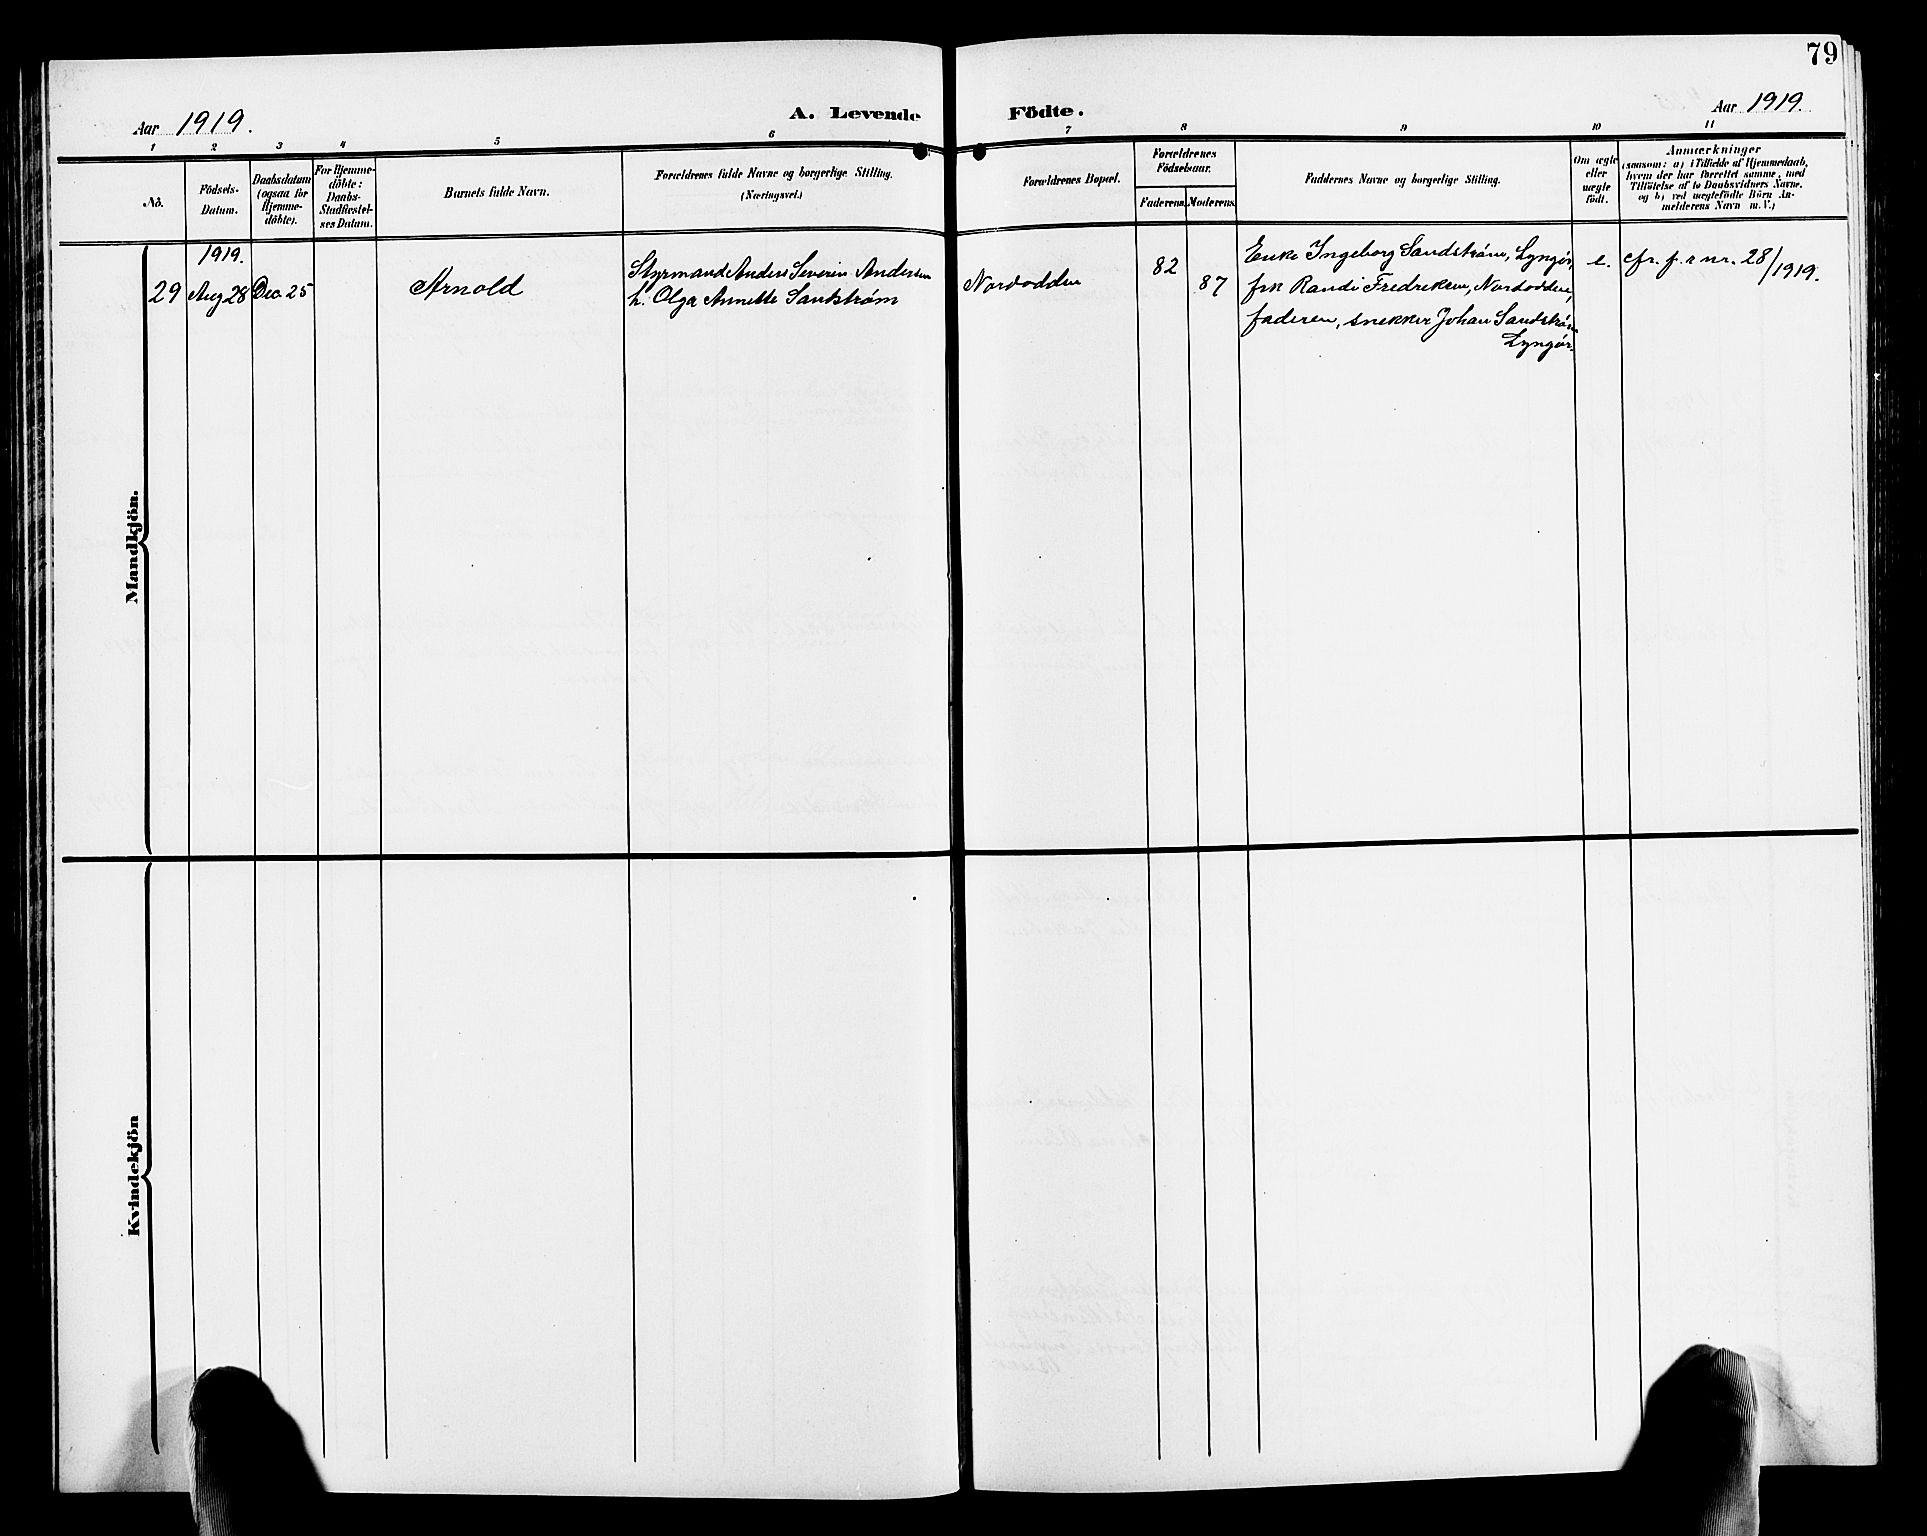 79
Aar 1919.
A. Levende Födte.
Aar 1919.
1 2 3 4 5 6 7 8 9 10 11
No.
Födsels-
Datum.
Daabsdatum
(ogsaa for
Hjemme-
döbte).
For Hjemme-
döbte:
Daabs-
Stadfæstel-
ses Datum.
Barnets fulde Navn.
Forældrenes fulde Navne og borgerlige Stilling.
(Næringsvei.)
Forældrenes Bopæl.
Forældrenes
Födselsaar.
Faderens. Moderens.
Faddernes Navne og borgerlige Stilling.
Om ægte
eller
uægte
födt.
Anmærkninger
(saasom: a) i Tilfælde af Hjemmedaab,
hvem der har forrettet samme, med
Tilföielse af to Daabsvidners Navne,
og b) ved uægtefödte Börn An-
melderens Navn m. V.)
Mandkjön.
1919.
29 Aug 28 Dec. 25
Arnold
Styrmand Anders Severin Andersen
h. Olga Annette Sandstrøm
Nordodden
82
87
Enke Ingeborg Sandstrøm, Lyngør,
frk Randi Fredriksen, Nordodden,
faderen, snekker Johan Sandstrøm
Lyngør.
e.
cfr. f. r nr. 28/1919.
Kvindekjön